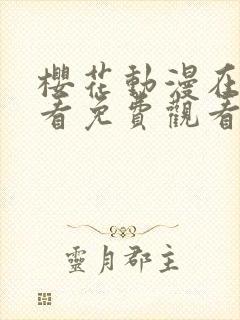 櫻花動漫在
看免費觀看
靈月郡主